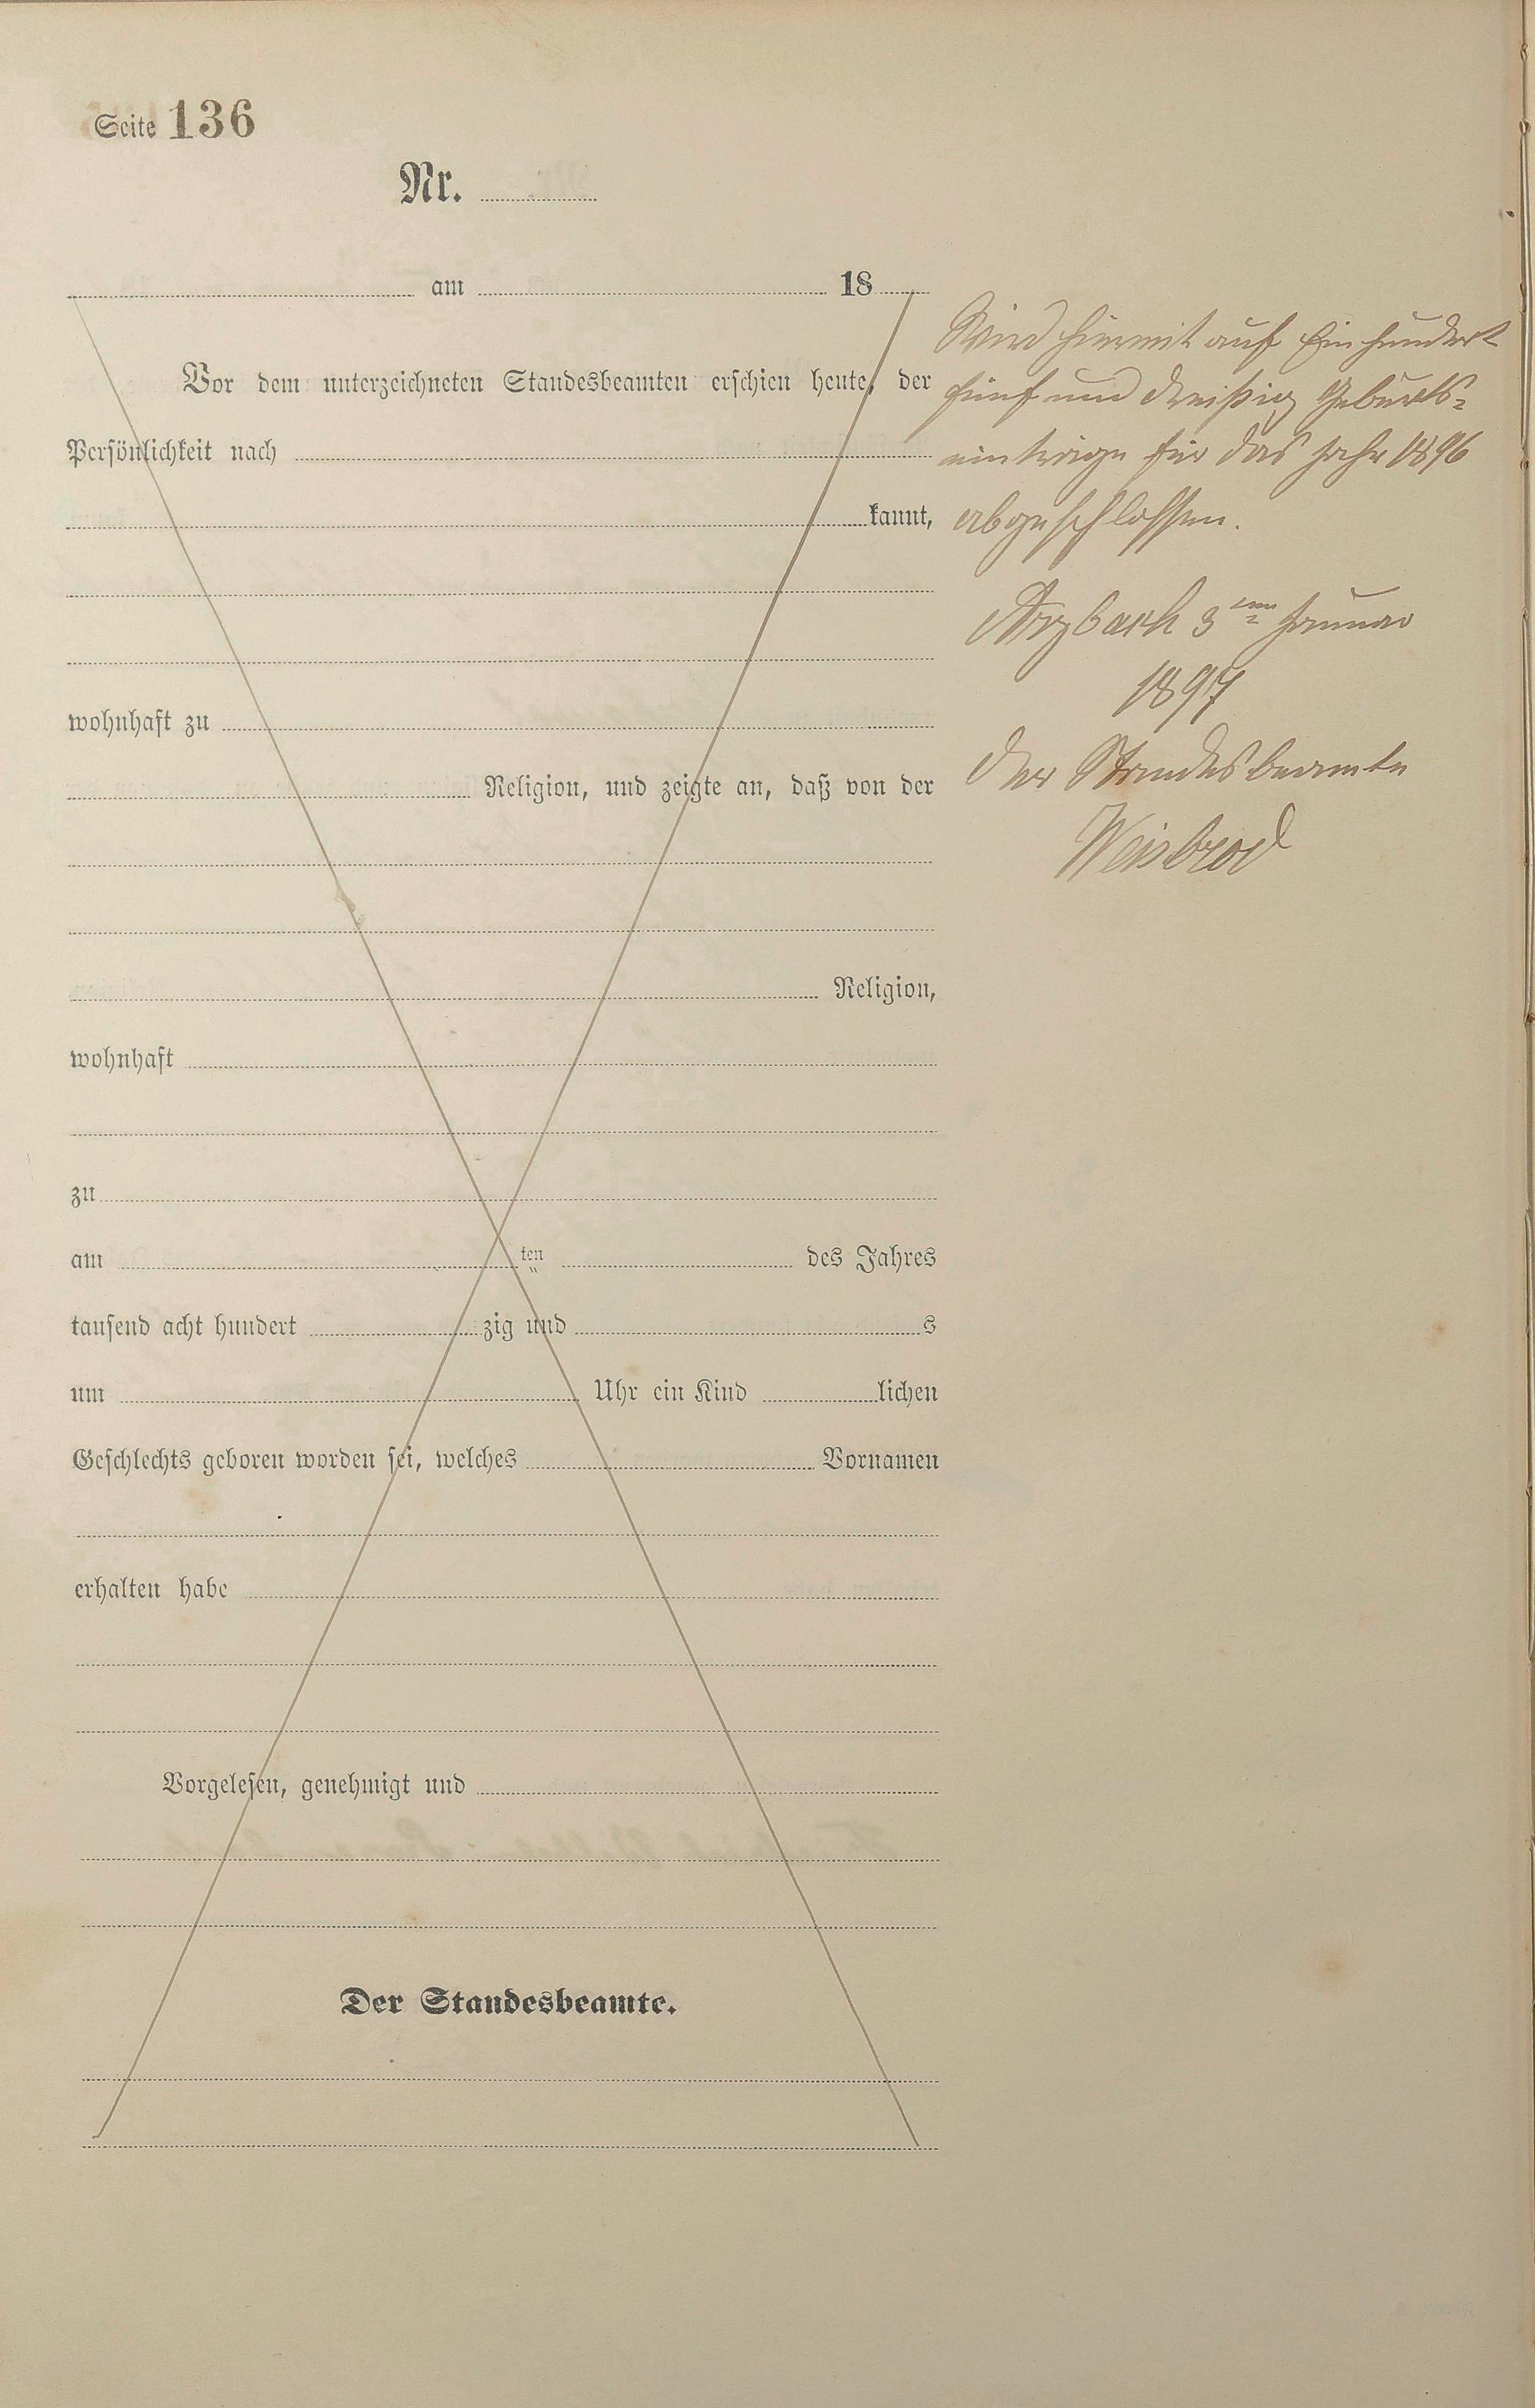 Seite 136
Nr.
am 18
Vor dem unterzeichneten Standesbeamten erschien heute, der
Persönlichkeit nach
kannt,
wohnhaft zu
Religion, und zeigte an, daß von der
Religion,
wohnhaft
zu
am ten des Jahres
tausend acht hundert zig und s
um Uhr ein Kind lichen
Geschlechts geboren worden sei, welches Vornamen
erhalten habe
Vorgelesen, genehmigt und
Der Standesbeamte.
Wird hiermit auf Ein hundert
fünf und dreißig Geburts-
einträge für das Jahr 1896
abgeschlossen.
Arzbach 3ten Januar
1897
Der Standesbeamte
Weisbrod